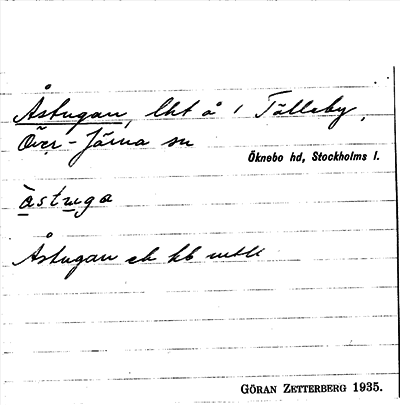 Åstugan, lht å 1 Tälleby,
Över-Järna sn
Öknebo hd, Stockholms l.
àstuga
Åstugan ek kb
GÖRAN ZETTERBERG 1935.